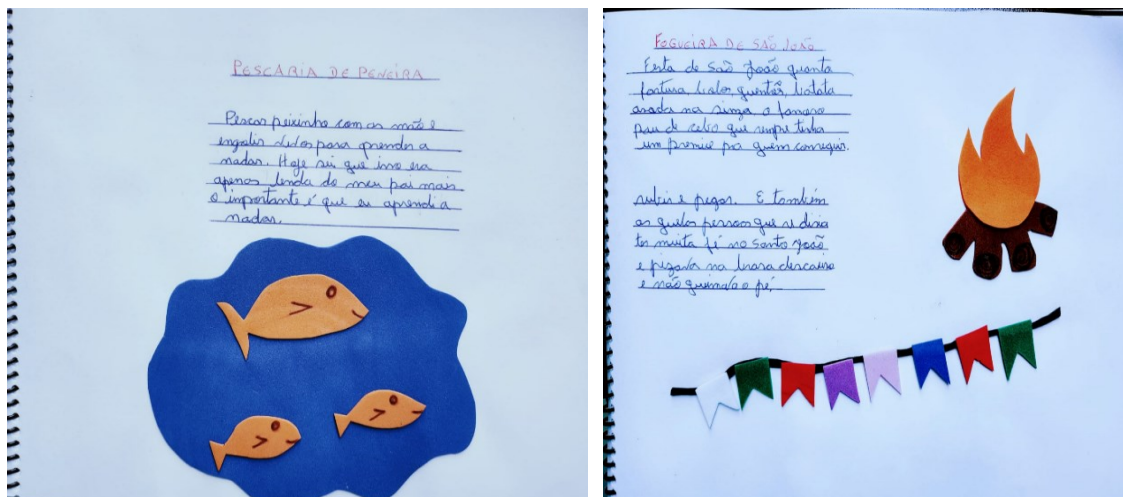 PESCARIA DE PENEIRA
Pescar peixinho com as mão e
engolir vivos para aprender a
nadar. Hoje sei que isso era
apenas lenda do meu pai mais
o importante é que eu aprendi a
nadar.
FOGUEIRA DE SÃO JOÃO
Festa de São João quanta
fartura, bolos, quentão, batata
asada na sinza o famoso
pau de cebo que sempre tinha
um premio pra quem conseguir.
subir e pegar. E também
as pessoas que dizia
ter muita fé no Santo João
e pizava na brasa descauso
e não queimava o pé.